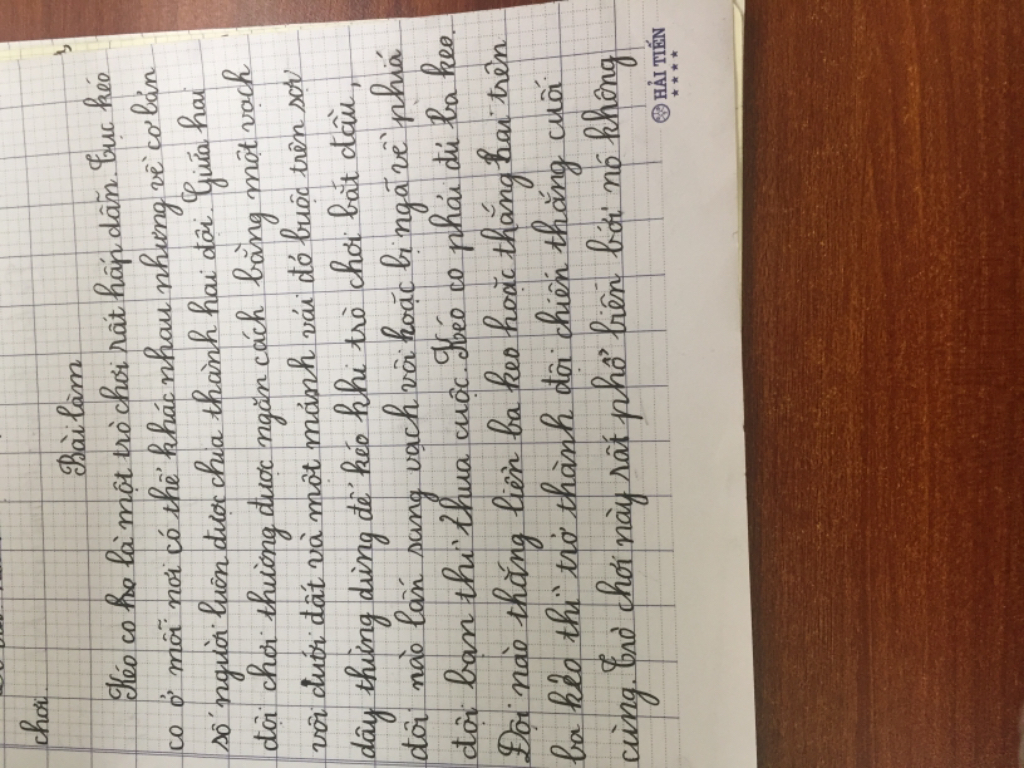 chơi.
Bài làm
Kéo co hạ là một trò chơi rất hấp dẫn. Tục kéo
co ở mỗi nơi có thể khác nhau nhưng về cơ bản
số người luôn được chia thành hai đội. Giữa hai
đội chơi thường được ngăn cách bằng một vạch
vôi dưới đất và một mảnh vải đỏ buộc trên sợi
dây thừng dùng để kéo khi trò chơi bắt đầu,
đội nào lấn sung vạch vôi hoặc bị ngã về phía
đội bạn thì thua cuộc. Kéo co phải đủ ba keo.
Đội nào thắng liền ba keo hoặc thắng hai trên
ba kẻo thì trở thành đội chiến thắng cuối
cùng. Trò chơi này rất phổ biến bởi nó không
HẢI TIẾN